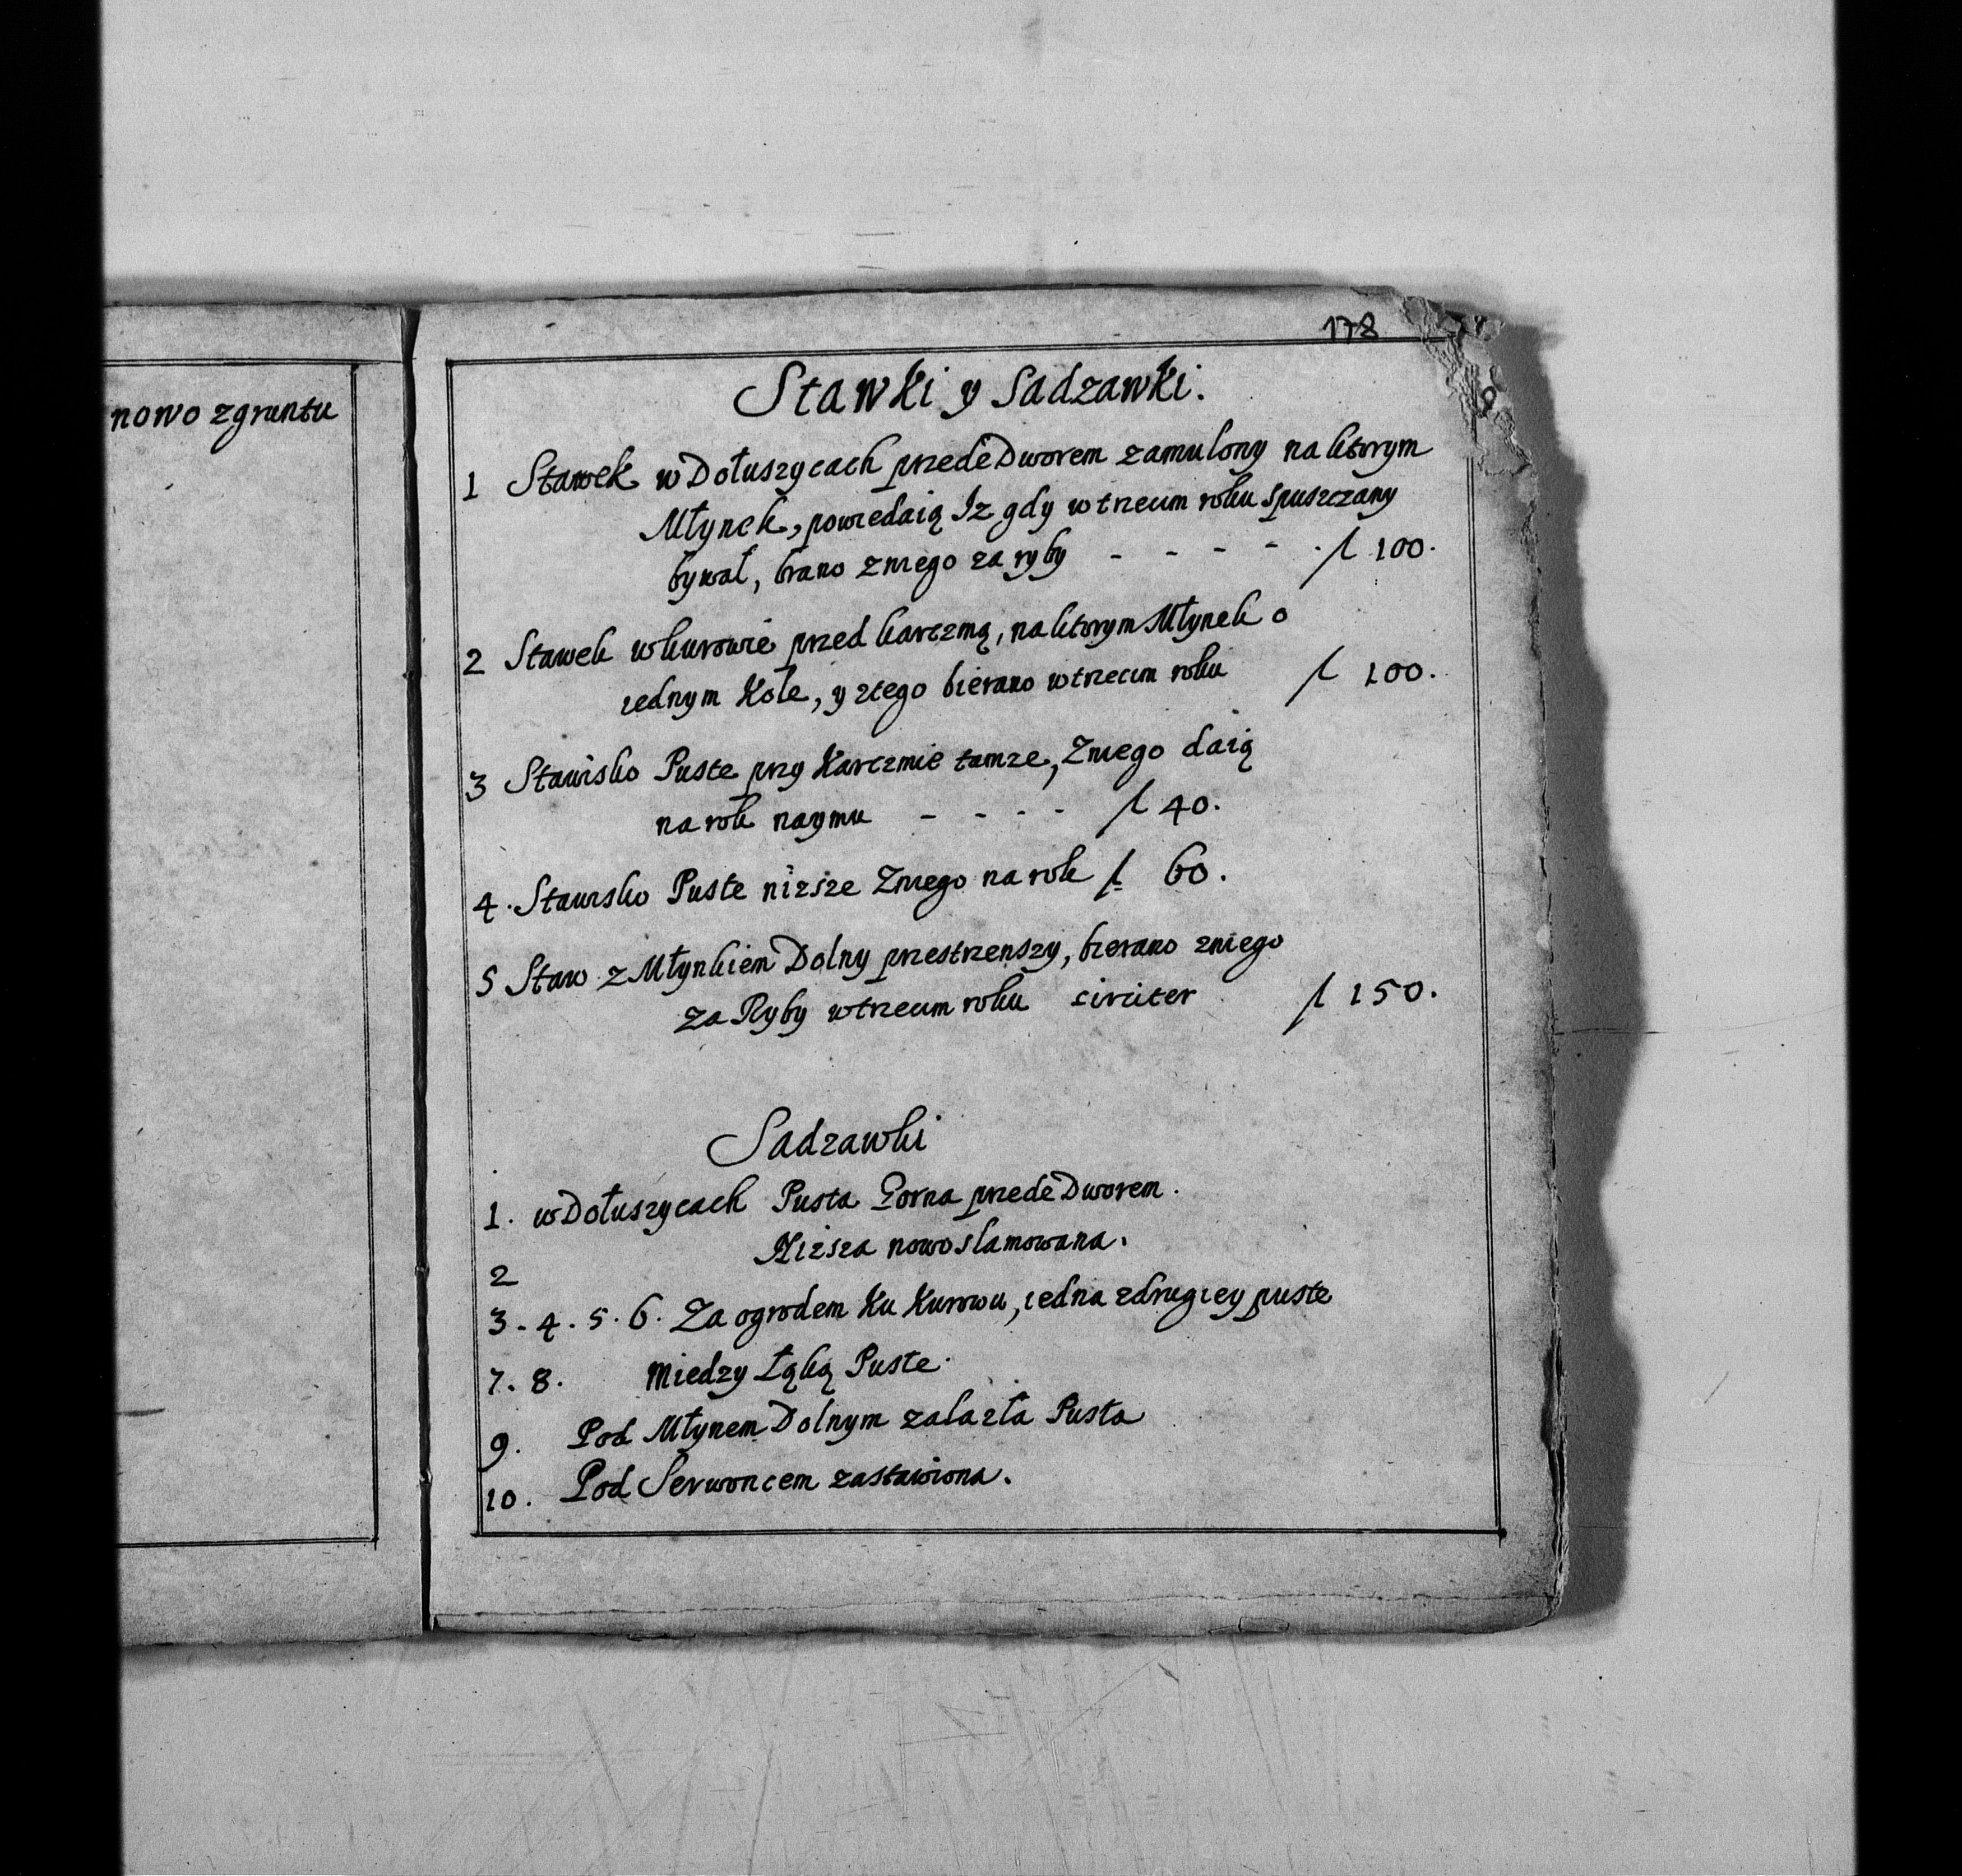 nowo zgruntu
178
Stawki y Sadzawki.
1 Stawek w Dołuszycach przede Dworem zamulony na ktorym
Młynek, powiedaią Iz gdy w trzecim roku spuszczany
bywał, brano zniego za ryby - - - - . f 100.
2 Stawek wkurowie przed karczmą, na ktorym Młynek o
iednym Kole, y ztego bierano w trzecim roku f 100.
3 Stawisko Puste przy Karczmie tamze, Zniego daią
na rok naymu - - - - f 40.
4. Stawisko Puste nizsze Zniego na rok f 60.
5 Staw z Młynkiem Dolny przestrzenszy, bierano zniego
za Ryby w trzecim roku circiter f 150.
Sadzawki
1. w Dołuszycach Pusta Gorna przede Dworem.
2 Nizsza nowo slamowana.
3. 4. 5. 6. Za ogrodem Ku Kurowu, iedna zdrugiey puste
7. 8. Miedzy Łąką Puste.
9. Pod Młynem Dolnym zalazła Pusta
10. Pod Serwoncem zastawiona.